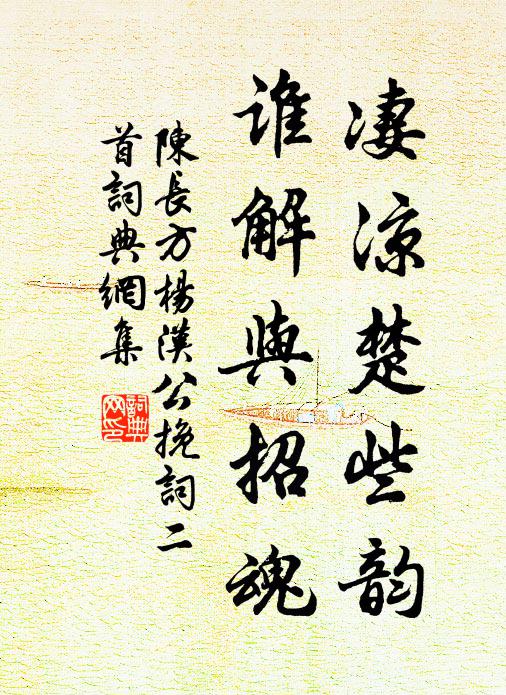 凄涼楚些韵
誰解與招魂
陳長方楊漢公挽詞二
首詞典網集
詞典
网印